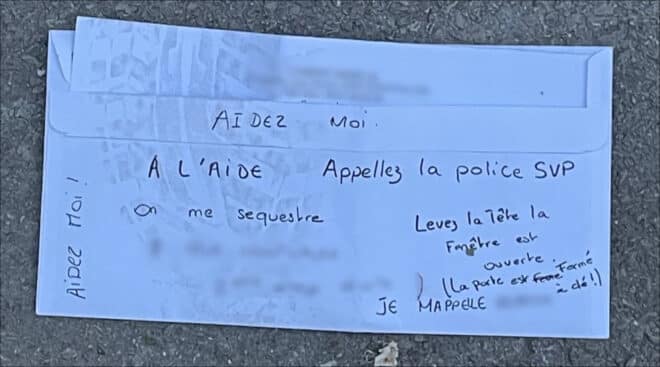 AIDEZ MOI.
A L'AIDE Appellez la police SVP
On me sequestre
Levez la Tête la
Fenêtre est
ouverte.
(la porte est Fermé
à clé!)
JE MAPPELLE
AIDEZ MOI!